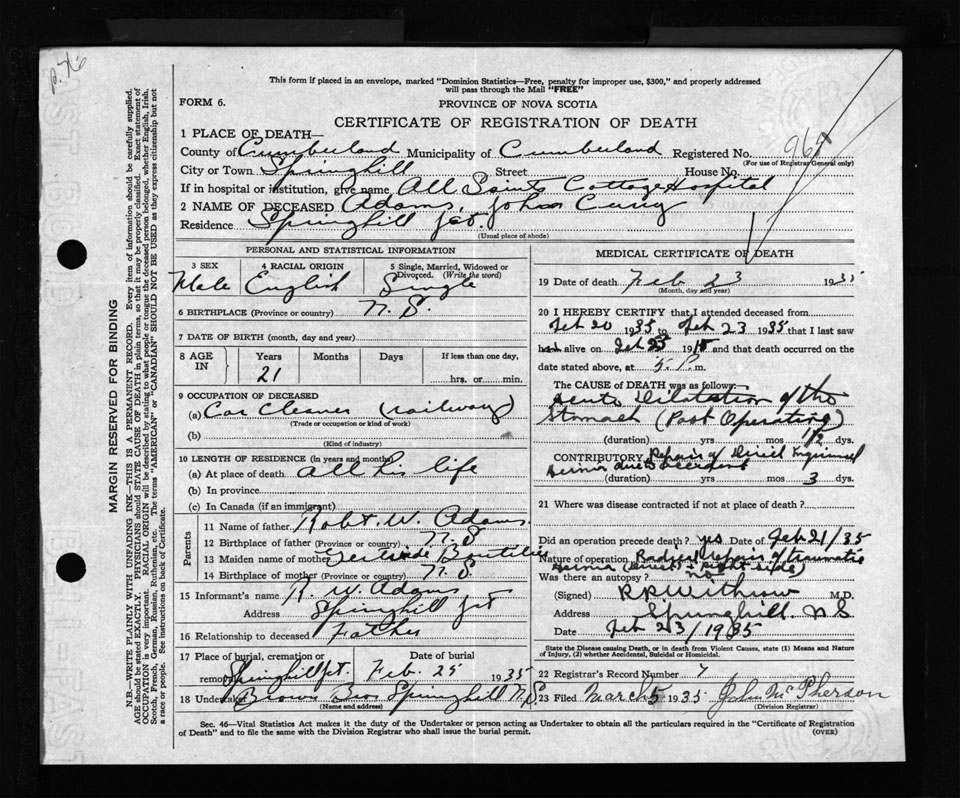 p. 76
This form if placed in an envelope, marked "Dominion Statistics—Free, penalty for improper use, $300," and properly addressed
will pass through the Mail "FREE"
FORM 6.
PROVINCE OF NOVA SCOTIA
CERTIFICATE OF REGISTRATION OF DEATH
1 PLACE OF DEATH—
County of Cumberland Municipality of Cumberland Registered No. 969
(For use of Registrar General only)
City or Town Springhill Street House No.
If in hospital or institution, give name All Saints Cottage Hospital
2 NAME OF DECEASED Adams, John
Residence Springhill Jct.
(Usual place of abode)
PERSONAL AND STATISTICAL INFORMATION
3 SEX 4 RACIAL ORIGIN 5 Single, Married, Widowed or Divorced. (Write the word)
Male English Single
6 BIRTHPLACE (Province or country) N. S.
7 DATE OF BIRTH (month, day and year)
8 AGE IN Years Months Days If less than one day,
21 hrs. or min.
9 OCCUPATION OF DECEASED
(a) Car Cleaner (railway)
(Trade or occupation or kind of work)
(b)
(Kind of industry)
10 LENGTH OF RESIDENCE (in years and months)
(a) At place of death all his life
(b) In province
(c) In Canada (if an immigrant)
Parents
11 Name of father Robt. W. Adams.
12 Birthplace of father (Province or country) N. S
13 Maiden name of mother Gertrude Boutilier
14 Birthplace of mother (Province or country) N. S
15 Informant's name R. W. Adams
Address Springhill Jct
16 Relationship to deceased Father
17 Place of burial, cremation or Date of burial
removal Springhill Jct. Feb. 25 1935
18 Undertaker Brown Bros Springhill N.S.
(Name and address)
MEDICAL CERTIFICATE OF DEATH
19 Date of death Feb 23 1935
(Month, day and year)
20 I HEREBY CERTIFY that I attended deceased from
Feb 20 1935 to Feb 23 1935 that I last saw
h alive on Feb 23 19 and that death occurred on
date stated above, at P.m.
The CAUSE of DEATH was as follows:
Acute Dilatation of the
Stomach (Post Operating)
(duration) yrs mos 1/2 dys.
CONTRIBUTORY Repair of Direct Inguinal
Hernia due to accident
(duration) yrs mos 3 dys.
21 Where was disease contracted if not at place of death?
Did an operation precede death? yes Date of Feb 21/35
Nature of operation Radical repair of traumatic
hernia (Direct = right side)
Was there an autopsy? no
(Signed) Withrow M.D.
Address Springhill. N S
Date Feb 23/1935
State the Disease causing Death, or in death from Violent Causes, state (1) Means and Nature
of Injury, (2) whether Accidental, Suicidal or Homicidal.
22 Registrar's Record Number 7
23 Filed March 5 1935 John McPherson
(Division Registrar)
Sec. 46—Vital Statistics Act makes it the duty of the Undertaker or person acting as Undertaker to obtain all the particulars required in the "Certificate of Registration
of Death" and to file the same with the Division Registrar who shall issue the burial permit.
(OVER)
MARGIN RESERVED FOR BINDING
N.B.—WRITE PLAINLY WITH UNFADING INK—THIS IS A PERMANENT RECORD. Every item of information should be carefully supplied.
AGE should be stated EXACTLY. PHYSICIANS should STATE CAUSE OF DEATH in plain terms, so that it may be properly classified. Exact statement of
OCCUPATION is very important. RACIAL ORIGIN will be described by stating to what people or tongue the deceased person belonged, whether English, Irish,
Scotch, French, German, Russian, Ruthenian, etc. The terms "AMERICAN" or "CANADIAN" SHOULD NOT BE USED as they express citizenship but not
a race or people. See instructions on back of Certificate.